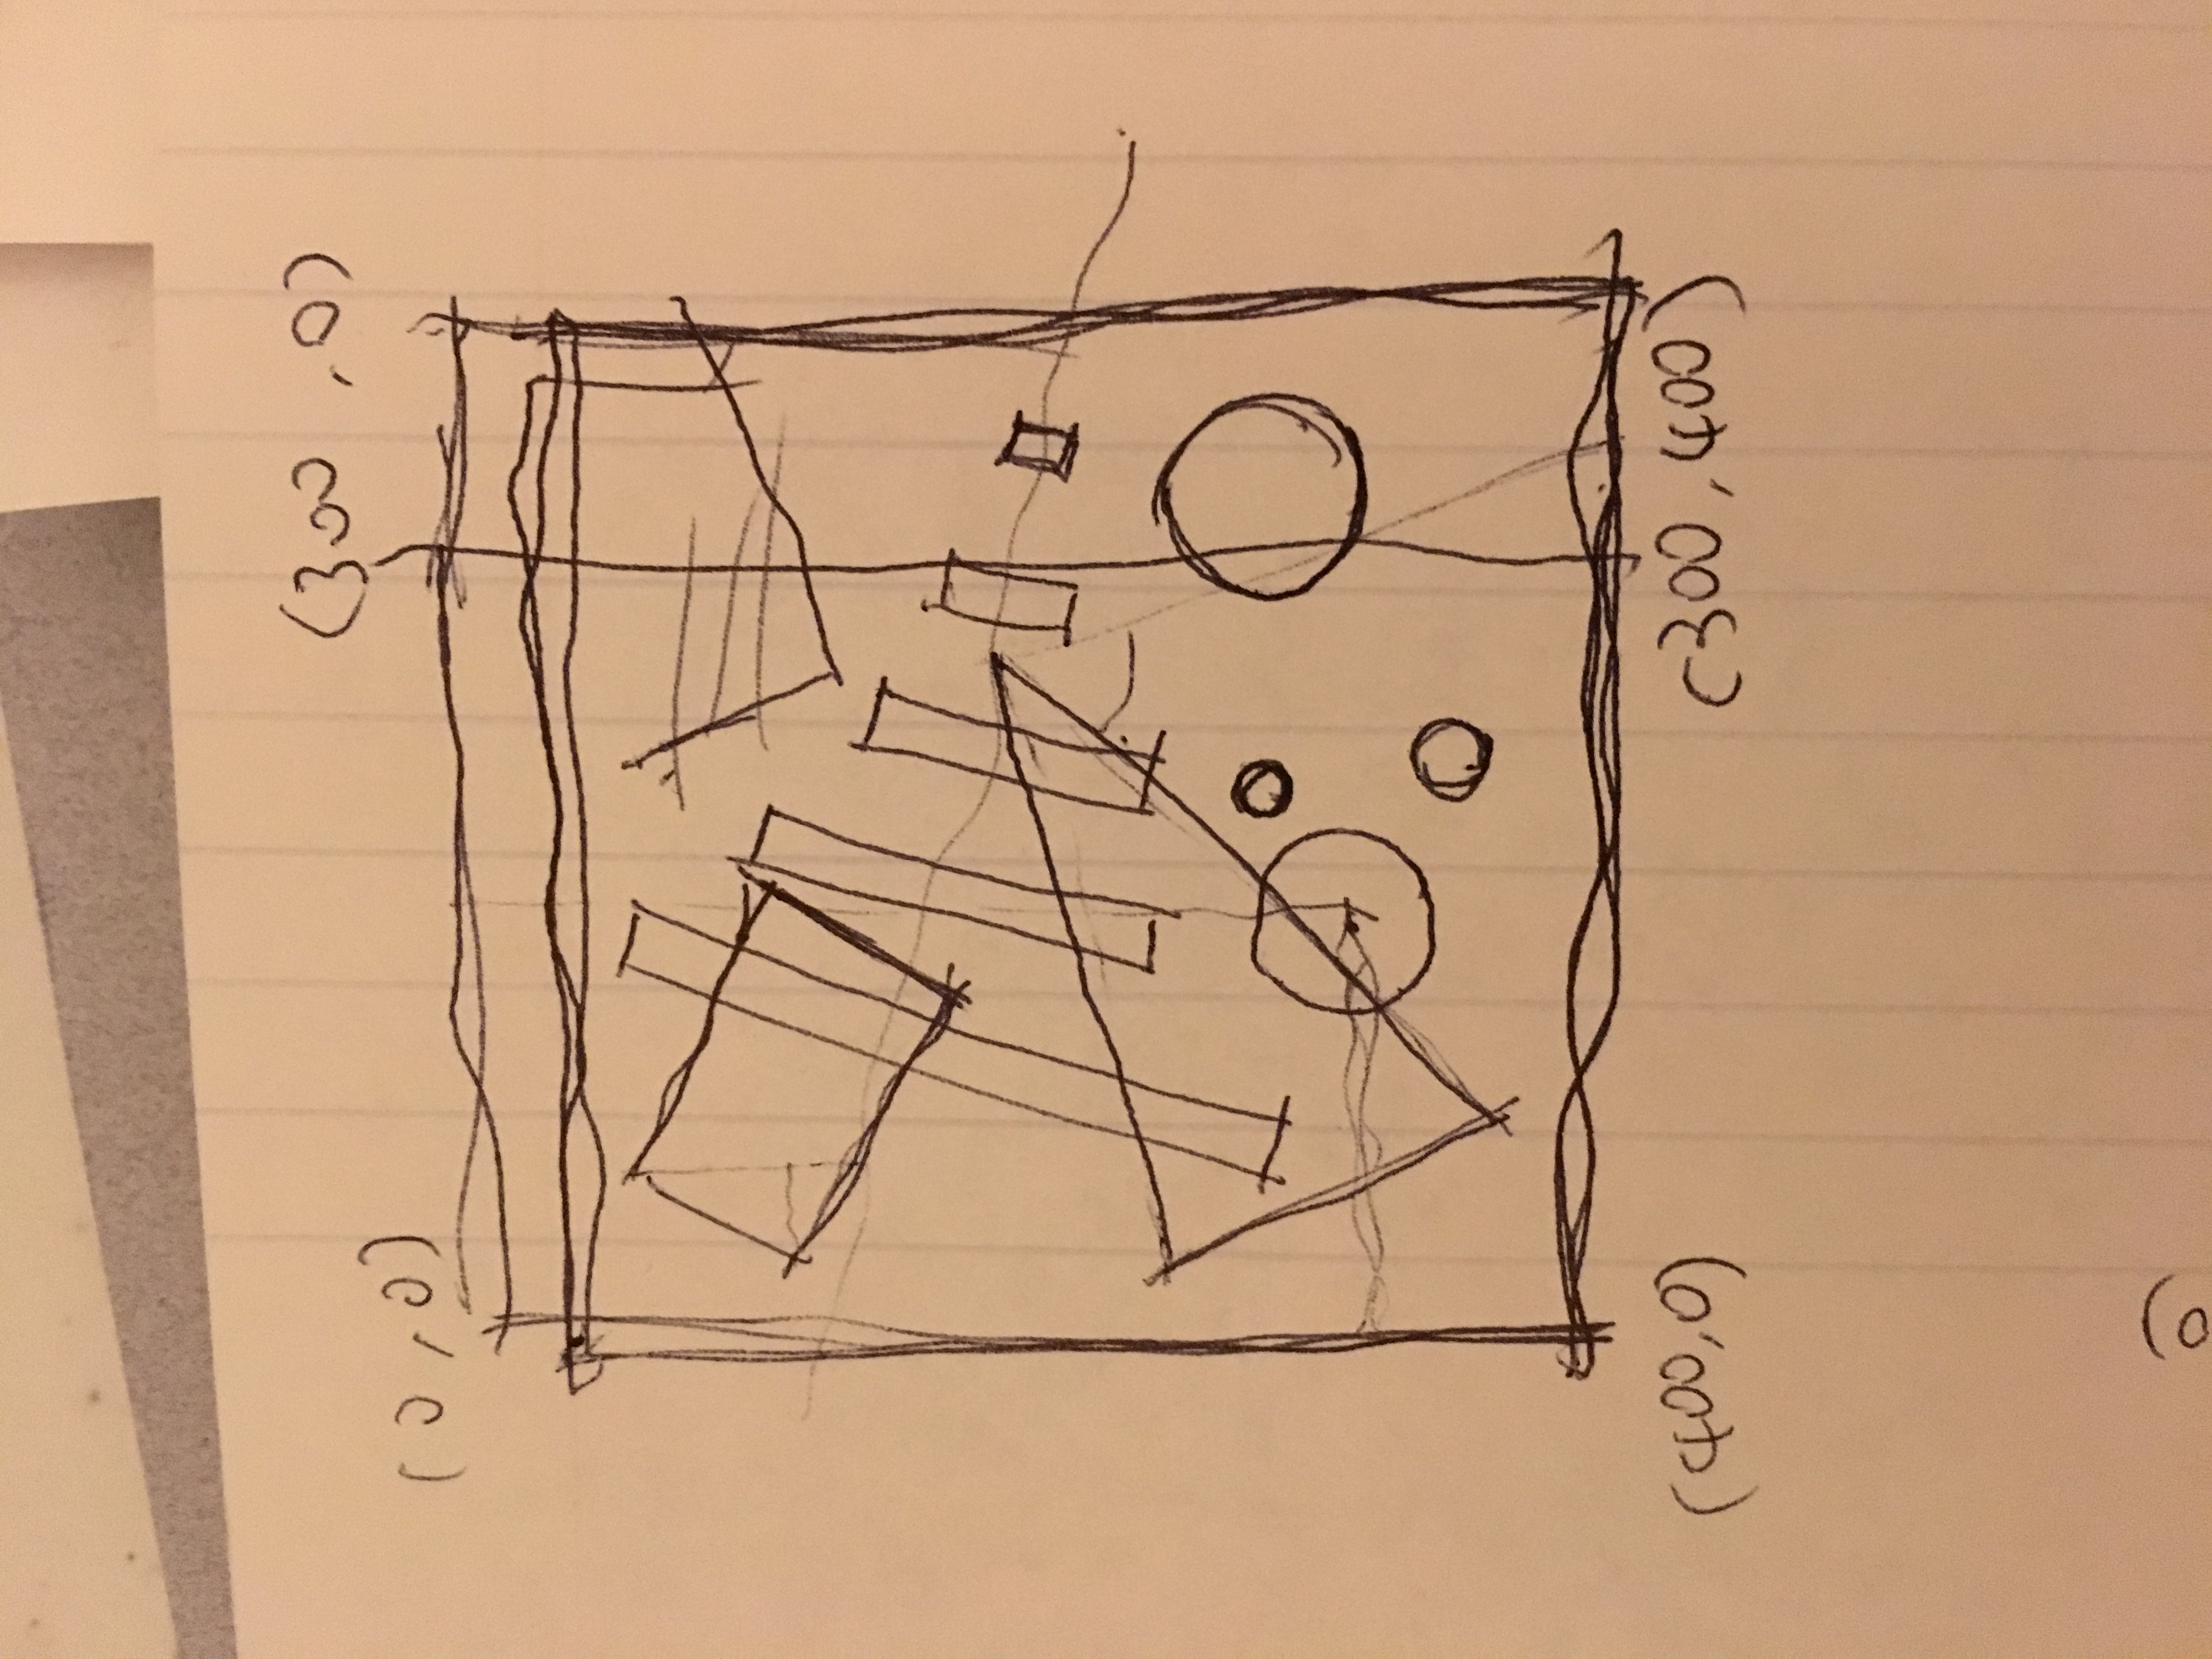 (300, 0)
(0, 0)
(400, 0)
(300, 400)